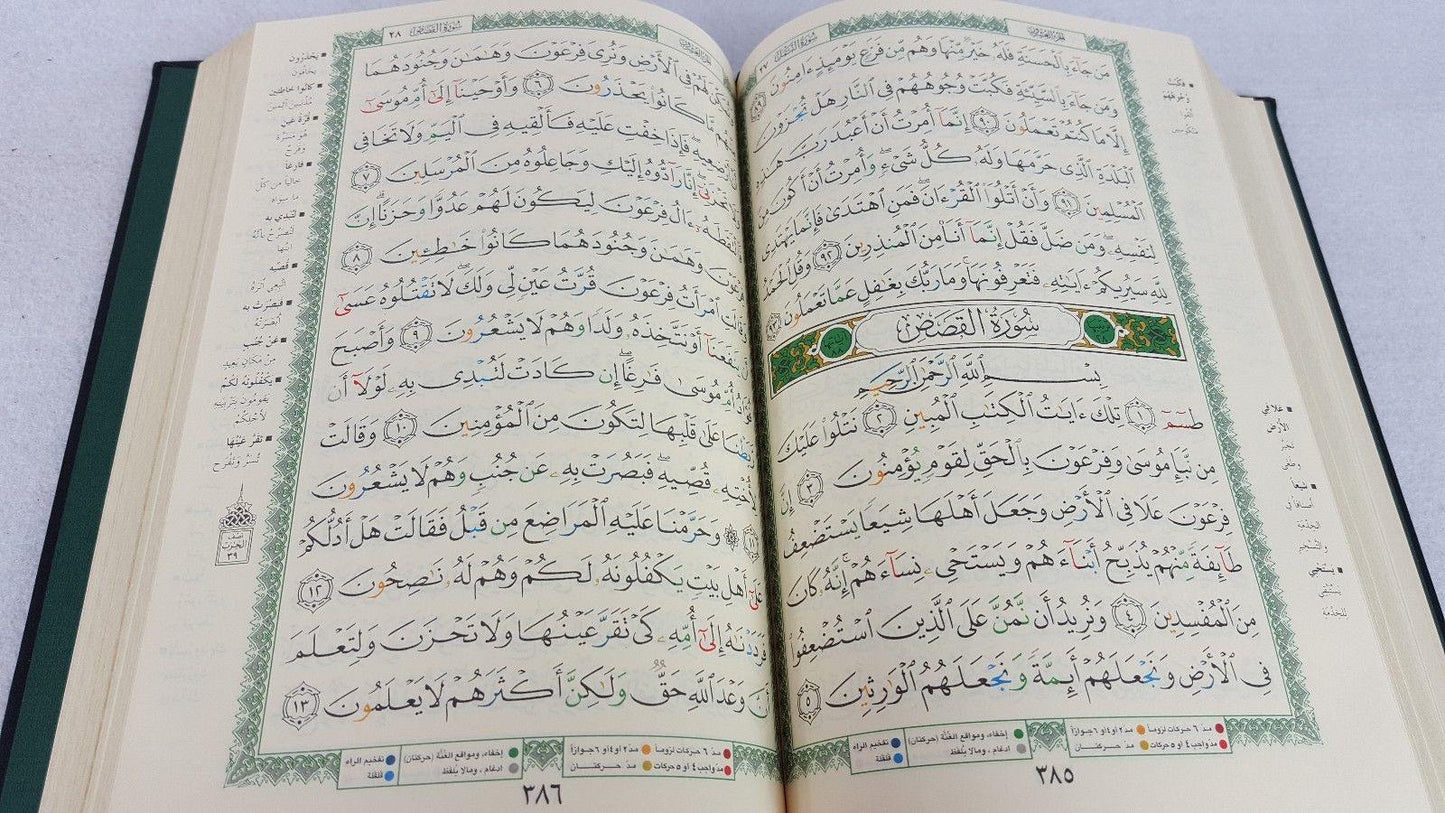 الجزء العشرون
سُورَةُ النَّمْلِ ٢٧
مَن جَآءَ بِٱلْحَسَنَةِ فَلَهُۥ خَيْرٌ مِّنْهَا وَهُم مِّن فَزَعٍ يَوْمَئِذٍ ءَامِنُونَ ٨٩
وَمَن جَآءَ بِٱلسَّيِّئَةِ فَكُبَّتْ وُجُوهُهُمْ فِى ٱلنَّارِ هَلْ تُجْزَوْنَ
إِلَّا مَا كُنتُمْ تَعْمَلُونَ ٩٠ إِنَّمَآ أُمِرْتُ أَنْ أَعْبُدَ رَبَّ هَٰذِهِ
ٱلْبَلْدَةِ ٱلَّذِى حَرَّمَهَا وَلَهُۥ كُلُّ شَىْءٍ وَأُمِرْتُ أَنْ أَكُونَ مِنَ
ٱلْمُسْلِمِينَ ٩١ وَأَنْ أَتْلُوَا۟ ٱلْقُرْءَانَ ۖ فَمَنِ ٱهْتَدَىٰ فَإِنَّمَا يَهْتَدِى
لِنَفْسِهِۦ ۖ وَمَن ضَلَّ فَقُلْ إِنَّمَآ أَنَا۠ مِنَ ٱلْمُنذِرِينَ ٩٢ وَقُلِ ٱلْحَمْدُ
لِلَّهِ سَيُرِيكُمْ ءَايَٰتِهِۦ فَتَعْرِفُونَهَا ۚ وَمَا رَبُّكَ بِغَٰفِلٍ عَمَّا تَعْمَلُونَ ٩٣
سُورَةُ القَصَصِ
بِسْمِ ٱللَّهِ ٱلرَّحْمَٰنِ ٱلرَّحِيمِ
طسٓمٓ ١ تِلْكَ ءَايَٰتُ ٱلْكِتَٰبِ ٱلْمُبِينِ ٢ نَتْلُوا۟ عَلَيْكَ
مِن نَّبَإِ مُوسَىٰ وَفِرْعَوْنَ بِٱلْحَقِّ لِقَوْمٍ يُؤْمِنُونَ ٣ إِنَّ
فِرْعَوْنَ عَلَا فِى ٱلْأَرْضِ وَجَعَلَ أَهْلَهَا شِيَعًا يَسْتَضْعِفُ
طَآئِفَةً مِّنْهُمْ يُذَبِّحُ أَبْنَآءَهُمْ وَيَسْتَحْىِۦ نِسَآءَهُمْ ۚ إِنَّهُۥ كَانَ
مِنَ ٱلْمُفْسِدِينَ ٤ وَنُرِيدُ أَن نَّمُنَّ عَلَى ٱلَّذِينَ ٱسْتُضْعِفُوا۟
فِى ٱلْأَرْضِ وَنَجْعَلَهُمْ أَئِمَّةً وَنَجْعَلَهُمُ ٱلْوَٰرِثِينَ ٥
فَكُبَّتْ
وُجُوهُهُمْ
عَلَا فِي
الأَرْضِ
شِيَعاً
أصنافاً في
الخدمة
والتسخير
يَسْتَحْيِي
يستبقي
للخدمة
مدّ ٦ حركات لزوماً
مدّ ٢ أو ٤ أو ٦ جوازاً
إخفاء، ومواقع الغُنَّة (حركتان)
تفخيم الراء
مدّ واجب ٤ أو ٥ حركات
مدّ حركتان
إدغام ، ومالا يُلفظ
قلقلة
٣٨٥
سُورَةُ القَصَصِ ٢٨
لَهُمْ فِى ٱلْأَرْضِ وَنُرِىَ فِرْعَوْنَ وَهَٰمَٰنَ وَجُنُودَهُمَا
مَّا كَانُوا۟ يَحْذَرُونَ ٦ وَأَوْحَيْنَآ إِلَىٰٓ أُمِّ مُوسَىٰٓ
أَرْضِعِيهِ ۖ فَإِذَا خِفْتِ عَلَيْهِ فَأَلْقِيهِ فِى ٱلْيَمِّ وَلَا تَخَافِى
تَحْزَنِىٓ ۖ إِنَّا رَآدُّوهُ إِلَيْكِ وَجَاعِلُوهُ مِنَ ٱلْمُرْسَلِينَ ٧
فَٱلْتَقَطَهُۥٓ ءَالُ فِرْعَوْنَ لِيَكُونَ لَهُمْ عَدُوًّا وَحَزَنًا ۗ إِنَّ
فِرْعَوْنَ وَهَٰمَٰنَ وَجُنُودَهُمَا كَانُوا۟ خَٰطِـِٔينَ ٨
وَقَالَتِ ٱمْرَأَتُ فِرْعَوْنَ قُرَّتُ عَيْنٍ لِّى وَلَكَ ۖ لَا تَقْتُلُوهُ عَسَىٰٓ
يَنفَعَنَآ أَوْ نَتَّخِذَهُۥ وَلَدًا وَهُمْ لَا يَشْعُرُونَ ٩ وَأَصْبَحَ
فُؤَادُ أُمِّ مُوسَىٰ فَٰرِغًا ۖ إِن كَادَتْ لَتُبْدِى بِهِۦ لَوْلَآ أَن
رَّبَطْنَا عَلَىٰ قَلْبِهَا لِتَكُونَ مِنَ ٱلْمُؤْمِنِينَ ١٠ وَقَالَتْ
لِأُخْتِهِۦ قُصِّيهِ ۖ فَبَصُرَتْ بِهِۦ عَن جُنُبٍ وَهُمْ لَا يَشْعُرُونَ
١١ ۞ وَحَرَّمْنَا عَلَيْهِ ٱلْمَرَاضِعَ مِن قَبْلُ فَقَالَتْ هَلْ أَدُلُّكُمْ
عَلَىٰٓ أَهْلِ بَيْتٍ يَكْفُلُونَهُۥ لَكُمْ وَهُمْ لَهُۥ نَٰصِحُونَ ١٢
فَرَدَدْنَٰهُ إِلَىٰٓ أُمِّهِۦ كَىْ تَقَرَّ عَيْنُهَا وَلَا تَحْزَنَ وَلِتَعْلَمَ
أَنَّ وَعْدَ ٱللَّهِ حَقٌّ وَلَٰكِنَّ أَكْثَرَهُمْ لَا يَعْلَمُونَ ١٣
يَحْذَرُون
يخافون
كَانُوا خَاطِئِين
مذنبين آثمين
قُرَّةُ عَيْنٍ
هو مسرّة
وفرح
فَارِغاً
خالياً من كل
ما سواه
لَتُبْدِي بِهِ
لتصرّح بأنّه
ابنها
قُصِّيهِ
اتّبعي أثره
فَبَصُرَتْ بِهِ
أبصرته
عَنْ جُنُبٍ
من مكان بعيد
يَكْفُلُونَهُ لَكُمْ
يقومون بتربيته
لأجلكم
تَقَرَّ عَيْنُهَا
تُسَرَّ وتفرح
نصف
الحزب
٣٩
مدّ ٦ حركات لزوماً
مدّ ٢ أو ٤ أو ٦ جوازاً
إخفاء، ومواقع الغُنَّة (حركتان)
تفخيم الراء
مدّ واجب ٤ أو ٥ حركات
مدّ حركتان
إدغام ، ومالا يُلفظ
قلقلة
٣٨٦